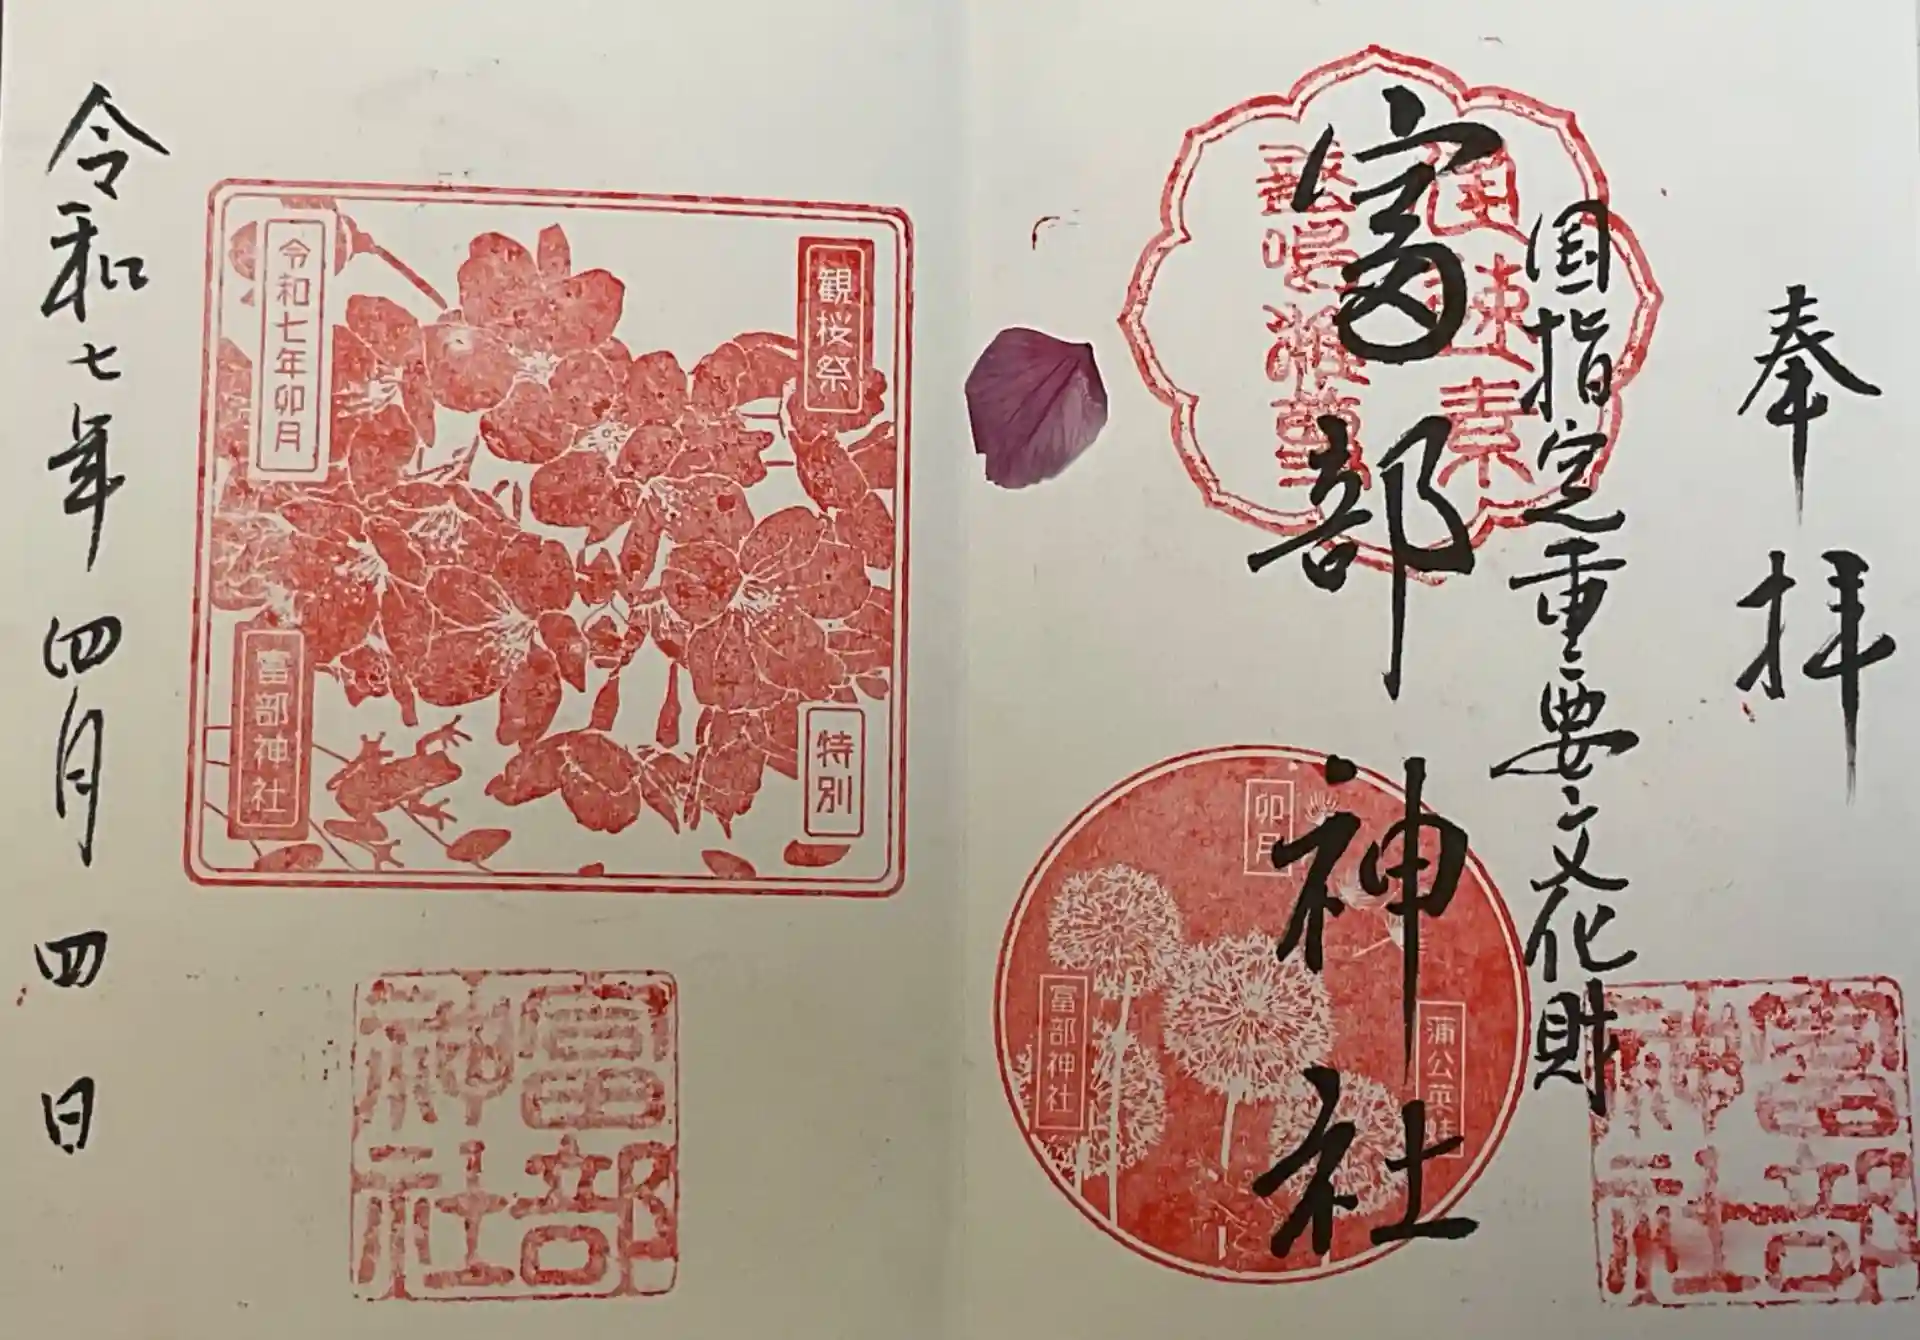 奉拝
国指定重要文化財
富部神社
素
卯月
蒲公英
富部神社
富部神社
観桜祭
特別
令和七年卯月
富部神社
富部神社
令和七年四月四日